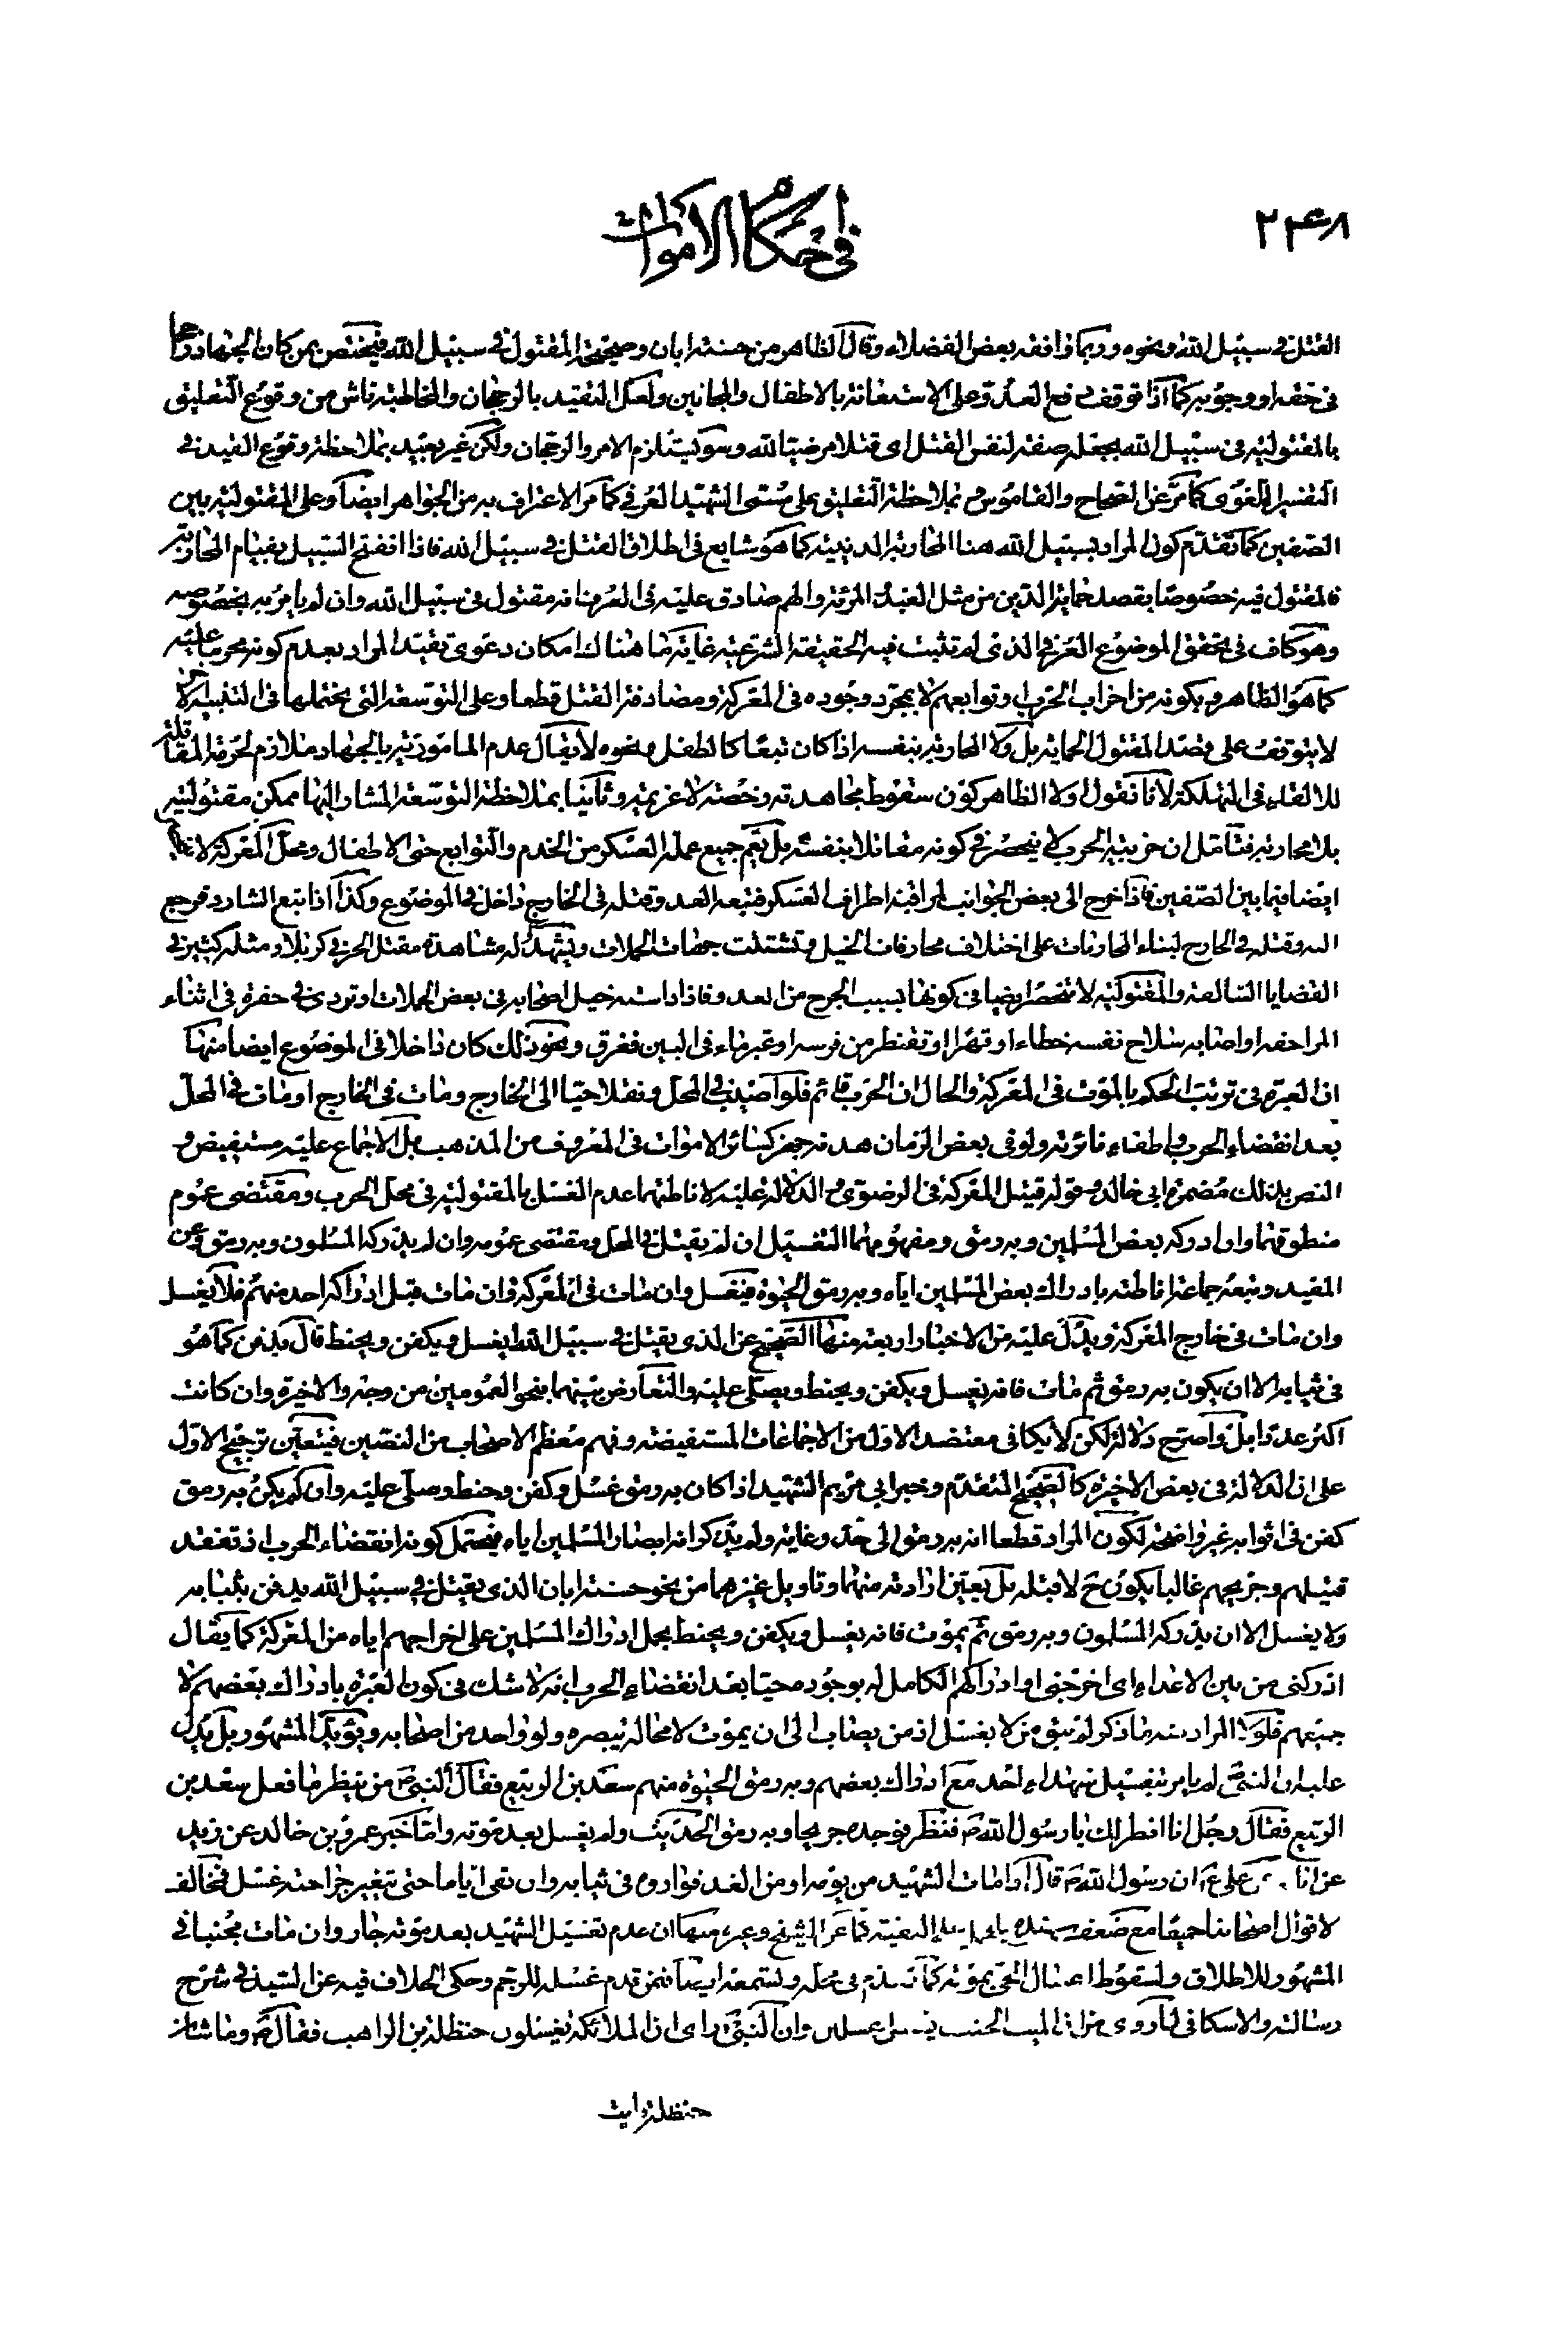 ٢٤٨
في احكام الاموات
القتل في سبيل الله ونحوه وربما وافقه بعض الفضلاء وقال الظاهر من حسنة ابان وصحيحته المقتول في سبيل الله فيختص بمن كان الجهاد راجحا
في حقه او وجوبه كما اذا توقف دفع العدو على الاستعانة بالاطفال والمجانين ولعل التقييد بالرجحان والمخاطبة ناش من وقوع التعليق
بالمقتولية في سبيل الله بجعله صفة لنفس القتل اى قتلا مرضيا لله وسو يستلزم الامر والرجحان ولكن غير بعيد بملاحظة وقوع القيد في
التفسير اللغوى كما مر عن الصحاح والقاموس بملاحظة التعليق على مسمى الشهيد العرفي كما مر الاعتراف به من الجواهر ايضا وعلى المقتولية بين
الصفين كما تقدم كون المراد بسبيل الله هنا المحاربة الدينية كما هو شايع في اطلاق القتل في سبيل الله فاذا انفتح السبيل بقيام المحاربة
فالمقتول فيه خصوصا بقصد حماية الدين من مثل العبد والمرئة والهم صادق عليه في العرف انه مقتول في سبيل الله وان لم يامر به بخصوصه
وهو كاف في تحقق الموضوع العرفي الذى لم تثبت فيه الحقيقة الشرعية غاية ما هناك امكان دعوى تقيد المراد بعدم كونه محرما عليه
كما هو الظاهر وبكونه من احزاب الحرب وتوابعهم لا بمجرد وجوده في المعركة ومصادفة القتل قطعا وعلى التوسعة التي يحتملها في التنبيه الاخر
لا يتوقف على قصد المقتول الحماية بل ولا المحاربة بنفسه اذا كان تبعا كالطفل ونحوه لا يقال عدم المامورية بالجهاد ملازم لحرمة المقاتلة
للالقاء في التهلكة لانا نقول اولا الظاهر كون سقوط مجاهدته رخصة لا عزيمة وثانيا بملاحظة التوسعة المشار اليها ممكن مقتوليته
بلا محاربة فتامل ان حزبية الحرب لا ينحصر في كونه مقاتلا بنفسه بل يعم جميع عملة العسكر من الخدم والتوابع حتى الاطفال ومحل المعركة لا
ايضا فيما بين الصفين فاذا خرج الى بعض الجوانب لمراقبة اطراف العسكر فتبعه العدو وقتله في الخارج داخل في الموضوع وكذا اذا تبع الشارد فرجع
اليه وقتله في الخارج لبناء المحاربات على اختلاف مجاري الخيل وتشتت جهات الحملات ويشهد له مشاهدة مقتل الحر في كربلا ومثله كثير في
القضايا السالفة والمقتولية لا تنحصر ايضا في كونها بسبب الجرح من العدو فاذا داسته خيل اصحابه في بعض الحملات او تردى في حفرة في اثناء
المزاحفة او اصابه سلاح نفسه خطاء او قهرا او تقنطر من فرسه او عبر ماء في البين فغرق ونحو ذلك كان داخلا في الموضوع ايضا منها
ان العبرة في ترتب الحكم بالموت في المعركة والحال ان الحرب قائم فلو اصيب في المحل ونقل حيا الى الخارج ومات في الخارج او مات في المحل
بعد انقضاء الحرب واطفاء نائرته ولو في بعض الزمان هدنة جهز كسائر الاموات في المعروف من المذهب بل الاجماع عليه مستفيض و
النص بذلك مضمرة ابي خالد وقوله قتيل المعركة في الرضوى والدلالة عليه لاناطتهما عدم الغسل بالمقتولية في محل الحرب ومقتضى عموم
منطوقهما وان ادركه بعض المسلمين وبه رمق ومفهومهما التغسيل ان لم يقتل في المحل ومقتضى عمومه وان لم يدركه المسلمون وبه رمق وعن
المفيد وتبعه جماعة اناطته بادراك بعض المسلمين اياه وبه رمق الحيوة فيغسل وان مات في المعركة وان مات قبل ادراك احد منهم فلا يغسل
وان مات في خارج المعركة ويدل عليه من الاخبار اربعة منها الصحيح عن الذى يقتل في سبيل الله ايغسل ويكفن ويحنط قال يدفن كما هو
في ثيابه الا ان يكون به رمق ثم مات فانه يغسل ويكفن ويحنط ويصلى عليه والتعارض بينهما بنحو العمومين من وجه والاخيرة وان كانت
اكثر عددا بل واصرح دلالة لكن لا يكافى معتضد الاول من الاجماعات المستفيضة وفهم معظم الاصحاب من النصين فيتعين ترجيح الاول
على ان الدلالة في بعض الاخيرة كالصحيح المتقدم وخبر ابي مريم الشهيد اذا كان به رمق غسل وكفن وحنط وصلى عليه وان لم يكن به رمق
كفن في اثوابه غير واضحة لكون المراد قطعا انه به رمق الى حد وغاية ولم يذكر انه ابصار المسلمين اياه فيحتمل كونه انقضاء الحرب اذ تفقد
قتيلهم وجريحهم غالبا يكون ح لا قبله بل يعين ارادته منهما وتاويل غيرهما من نحو حسنة ابان الذى يقتل في سبيل الله يدفن بثيابه
ولا يغسل الا ان يدركه المسلمون وبه رمق ثم يموت فانه يغسل ويكفن ويحنط بحمل ادراك المسلمين على اخراجهم اياه من المعركة كما يقال
ادركنى من بين الاعداء اى اخرجنى او ادراكهم الكامل له بوجوده حيا بعد انقضاء الحرب انه لا شك في كون العبرة بادراك بعضهم لا
جميعهم فلو لا المراد منه ما ذكر لم يبق من لا يغسل اذ من يصاب الى ان يموت لا محالة يبصره ولو واحد من اصحابه ويؤيد المشهور بل يدل
عليه ان النبي ص لم يامر بتغسيل شهداء احد مع ادراك بعضهم وبه رمق الحيوة منهم سعد بن الربيع فقال النبي ص من ينظر ما فعل سعد بن
الربيع فقال رجل انا انظر لك يا رسول الله ص فنظر فوجده جريحا وبه رمق الحديث ولم يغسل بعد موته واما خبر عمرو بن خالد عن زيد
عن ابائه عن على ع ان رسول الله ص قال اذا مات الشهيد من يومه او من الغد فواروه في ثيابه وان بقى اياما حتى تتغير جراحته غسل فمخالف
لاقوال اصحابنا جميعا مع ضعف سنده التقية كما عن الشيخ وغيره منها ان عدم تغسيل الشهيد بعد موته جار وان مات مجنبا في
المشهور للاطلاق ولسقوط اغسال الحي بموته كما تقدم في محله ولتسمعه ايضا فمن قدم غسله للرجم وحكى الخلاف فيه عن السيد في شرح
رسالته والاسكافي لما روى من ان الميت الجنب وان النبي ص راى ان الملائكة يغسلون حنظلة بن الراهب فقال ص وما شان
حنظلة رايت